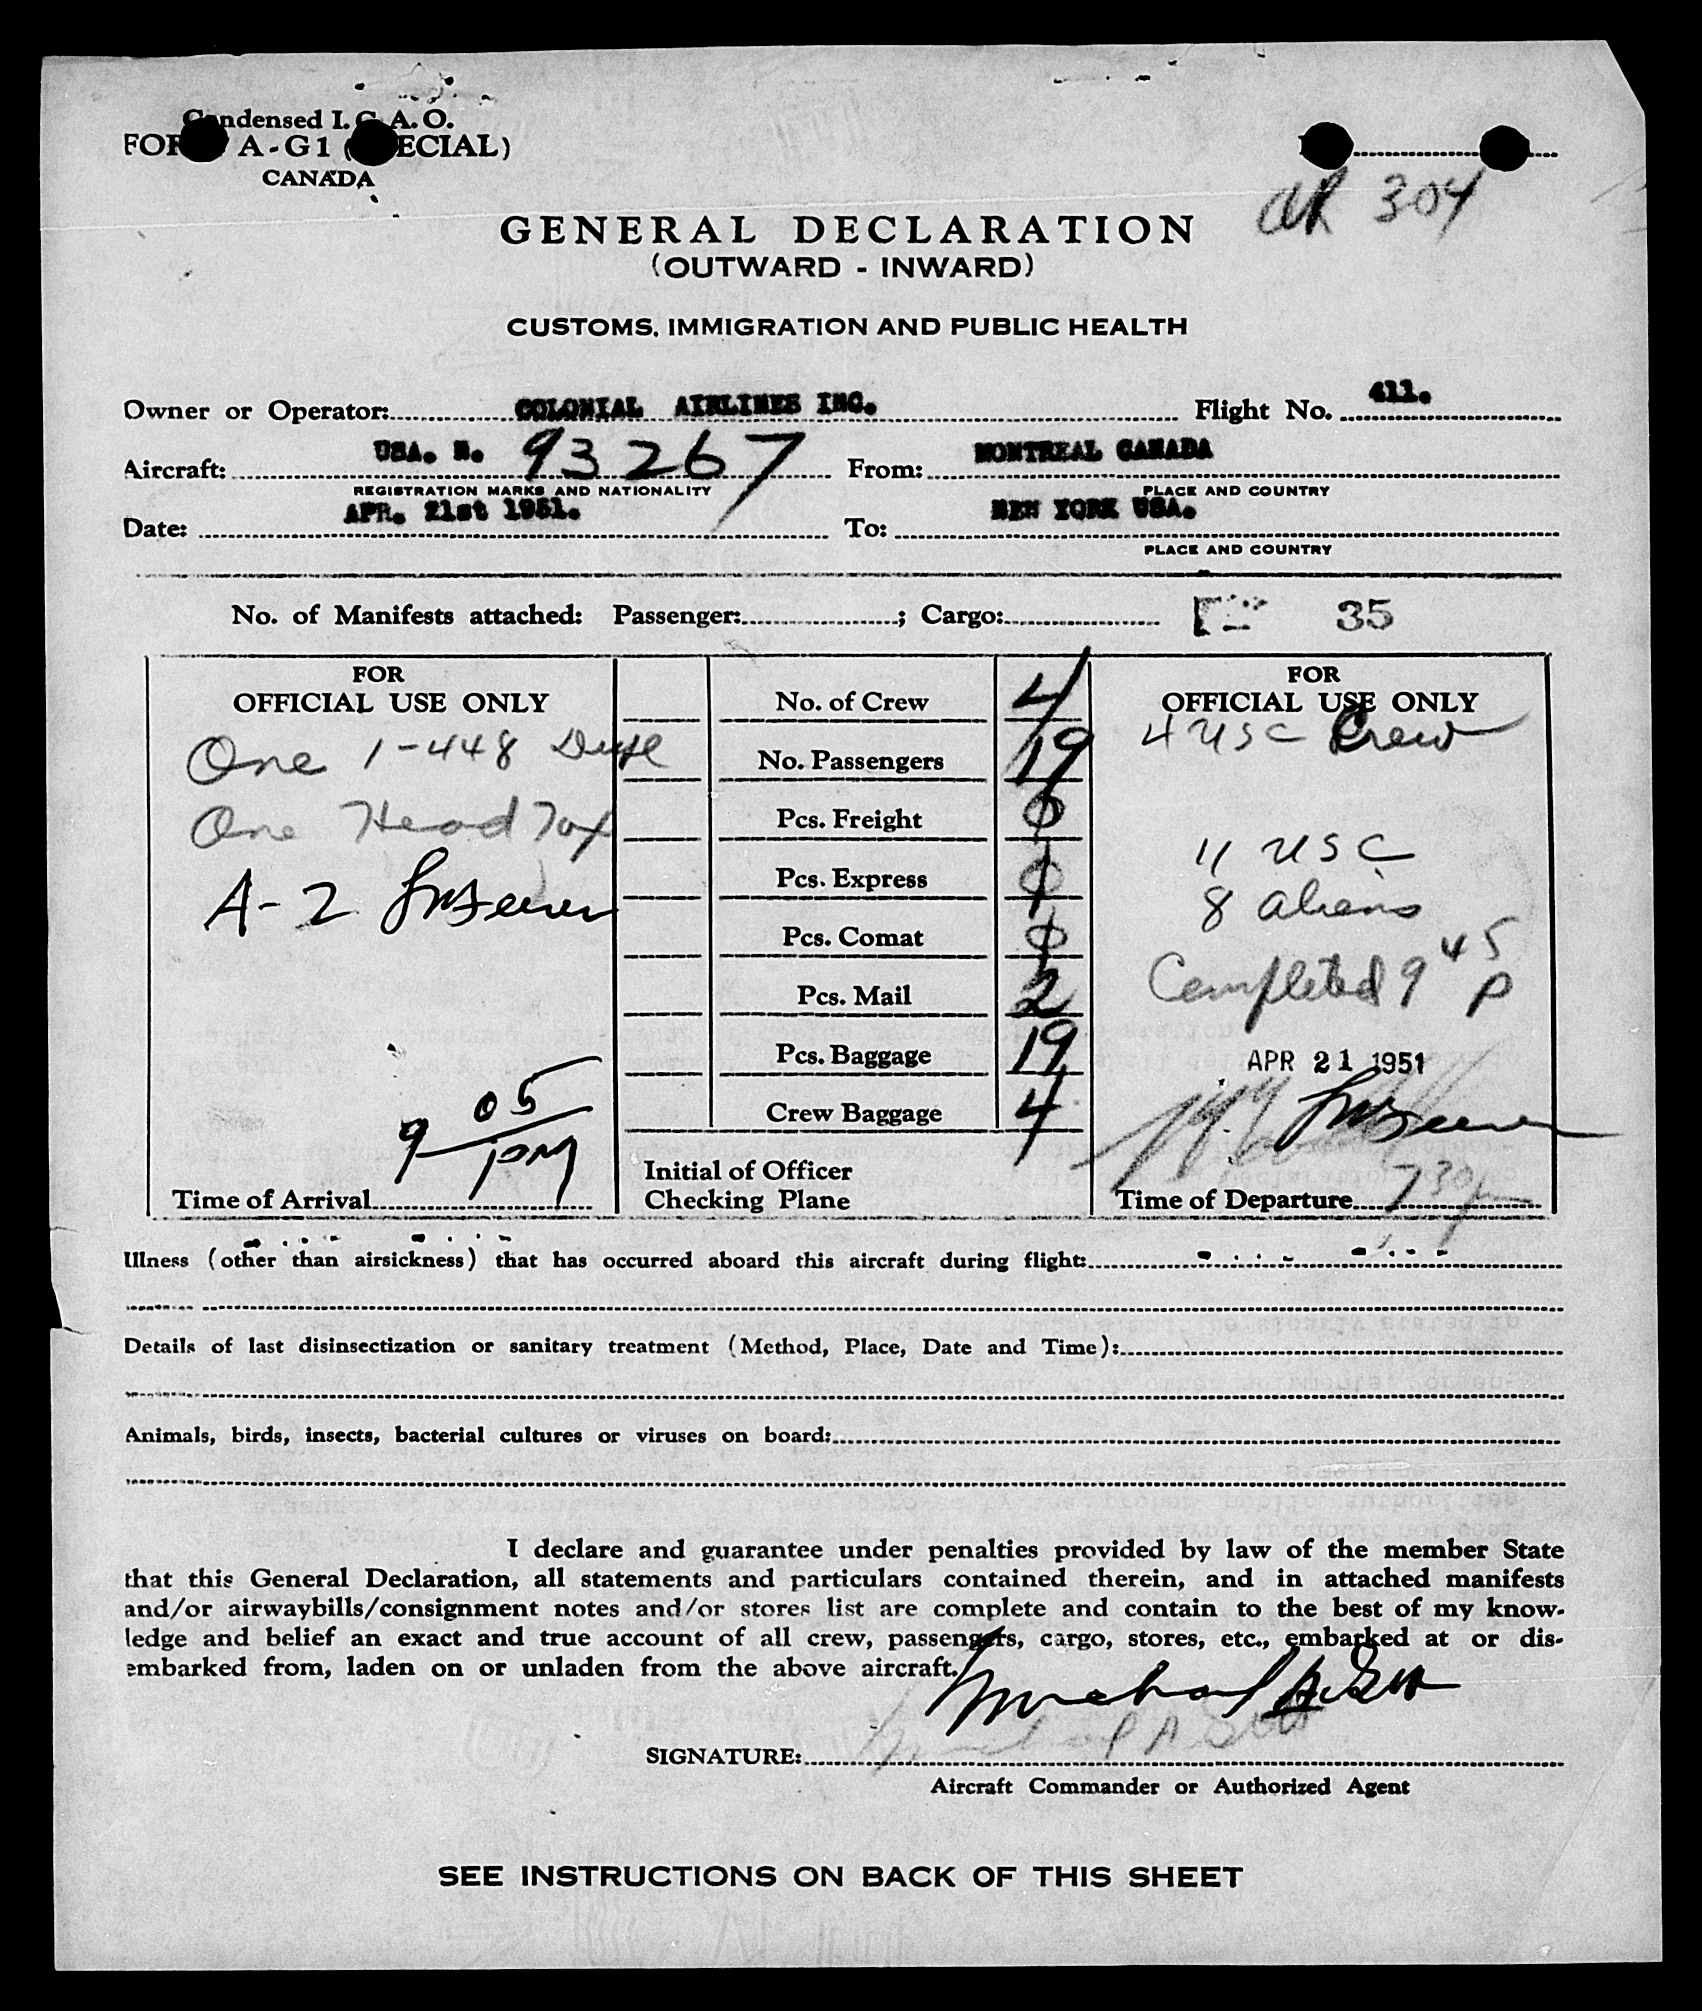 Condensed I.C.A.O.
FORM A-G1 (SPECIAL)
CANADA
AR 304
GENERAL DECLARATION
(OUTWARD - INWARD)
CUSTOMS, IMMIGRATION AND PUBLIC HEALTH
Owner or Operator: COLONIAL AIRLINES INC. Flight No. 411.
Aircraft: USA. N. 93267 From: MONTREAL CANADA
REGISTRATION MARKS AND NATIONALITY PLACE AND COUNTRY
Date: APR. 21st 1951. To: NEW YORK USA.
PLACE AND COUNTRY
No. of Manifests attached: Passenger: ; Cargo: 35
FOR
OFFICIAL USE ONLY
One 1-448 Dupe
One Head Tax
A-2
9 05 PM
Time of Arrival
No. of Crew 4
No. Passengers 19
Pcs. Freight 0
Pcs. Express 0
Pcs. Comat 0
Pcs. Mail 2
Pcs. Baggage 19
Crew Baggage 4
Initial of Officer
Checking Plane
FOR
OFFICIAL USE ONLY
4 USC Crew
11 USC
8 aliens
Completed 9 45 P
APR 21 1951
Time of Departure 730 pm
Illness (other than airsickness) that has occurred aboard this aircraft during flight:
Details of last disinsectization or sanitary treatment (Method, Place, Date and Time):
Animals, birds, insects, bacterial cultures or viruses on board:
I declare and guarantee under penalties provided by law of the member State
that this General Declaration, all statements and particulars contained therein, and in attached manifests
and/or airwaybills/consignment notes and/or stores list are complete and contain to the best of my know-
ledge and belief an exact and true account of all crew, passengers, cargo, stores, etc., embarked at or dis-
embarked from, laden on or unladen from the above aircraft.
SIGNATURE:
Aircraft Commander or Authorized Agent
SEE INSTRUCTIONS ON BACK OF THIS SHEET